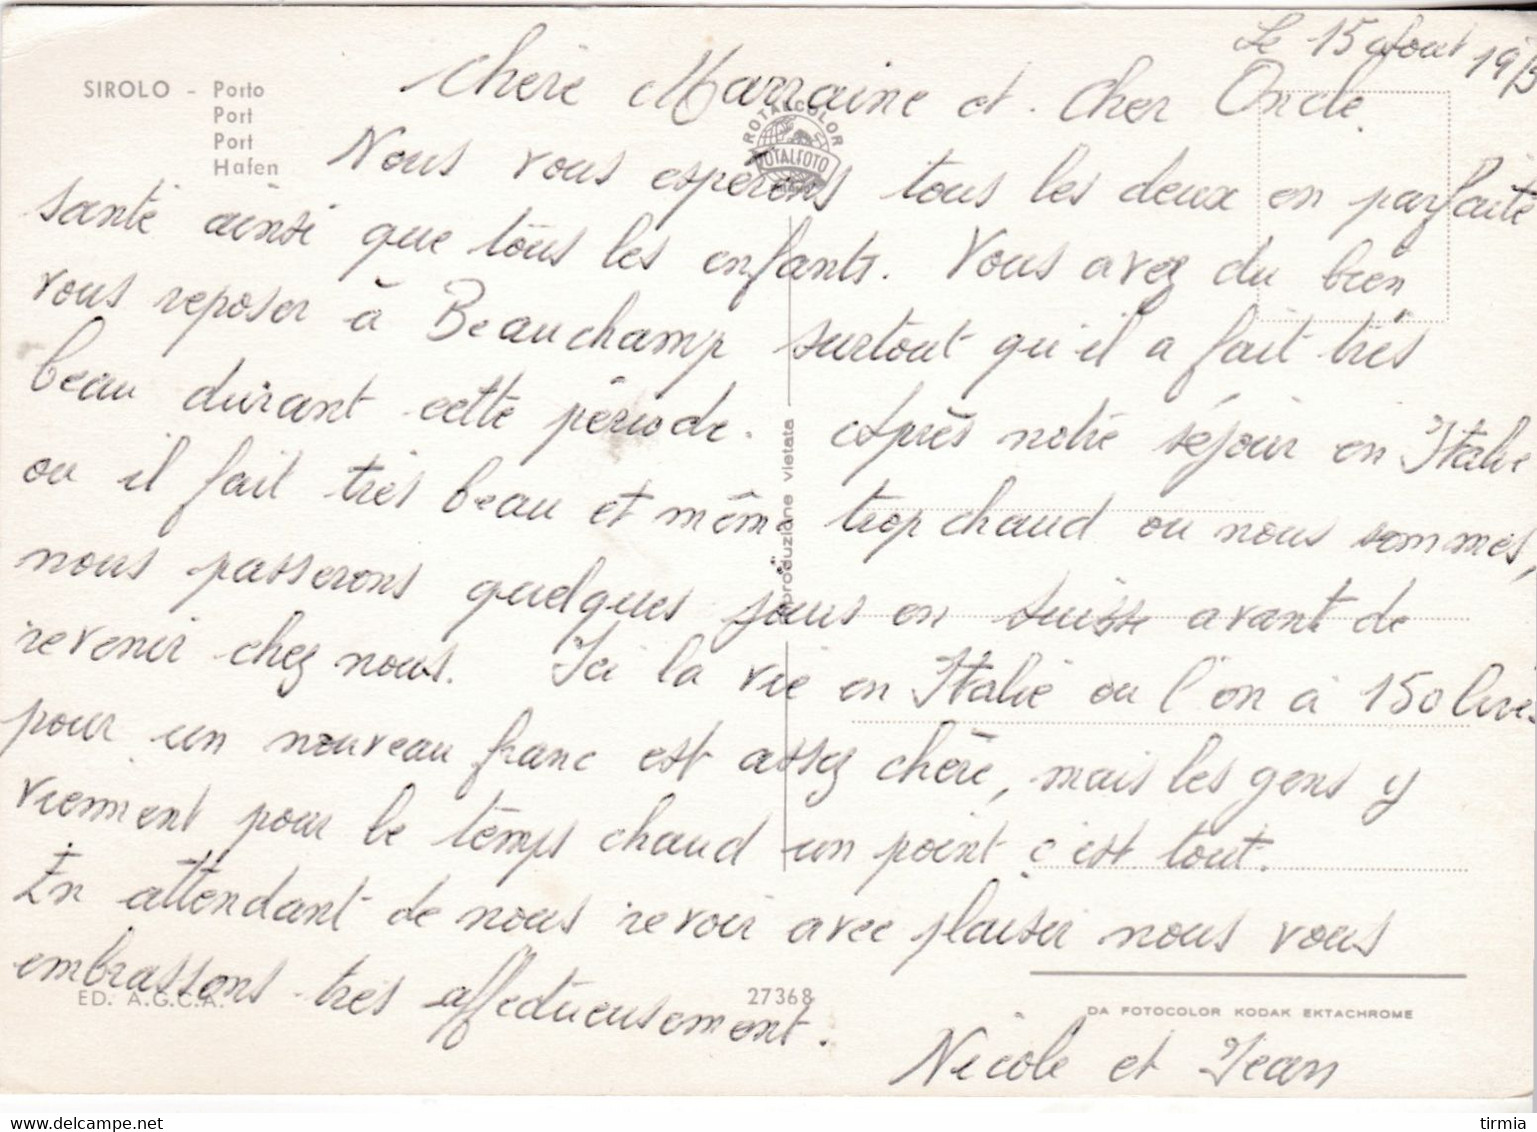 Le 15 aout 19
SIROLO - Porto
Port
Port
Hafen
Chère Marraine et Cher Oncle.
ROTALCOLOR
ROTALFOTO
Nous vous espérons tous les deux en parfaite
santé ainsi que tous les enfants. Vous avez du bien
vous reposer à Beauchamp surtout qu'il a fait très
beau durant cette période. Après notre séjour en Italie
ou il fait très beau et même trop chaud ou nous sommes,
nous passerons quelques jours en suisse avant de
revenir chez nous. Ici la vie en Italie ou l'on a 150 lires
pour un nouveau franc est assez chère, mais les gens y
viennent pour le temps chaud un point c'est tout.
En attendant de nous revoir avec plaisir nous vous
embrassons très affectueusement.
Nicole et Jean
riproduzione vietata
ED. A.G.C.A.
27368
DA FOTOCOLOR KODAK EKTACHROME
www.delcampe.net
tirmia